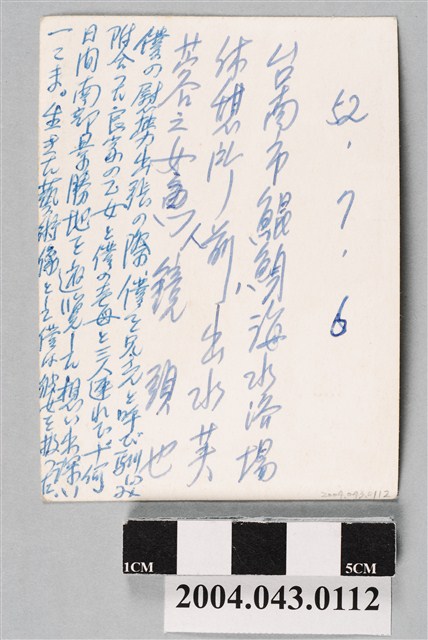 52.7.6
台南市鯤鯓海水浴場
休憩所ノ前ハ出水芙
蓉之女 人鏡頭也
僕の慰 出張の際、僕を兄さんと呼び馴れ
附合った良家の乙女と僕の老母と三人連れで 何
日間南部景勝地を遊覧した想い出深い
一こま。生きた藝術像として僕は彼女を
2004.043.0112
1CM
5CM
2004.043.0112